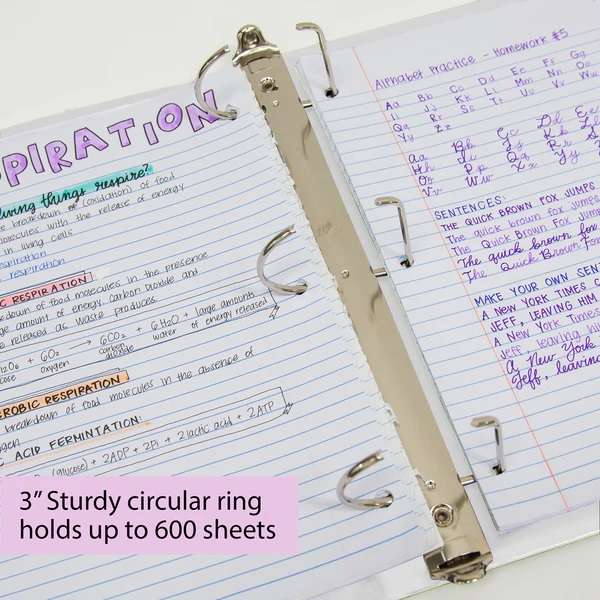 PIRATION
living things respire?
breakdown of (oxidation) of food
molecules with the release of energy
in living cells
respiration
respiration
RESPIRATION
down of food molecules in the presence
amount of energy. Carbon Dioxide and
released as waste products.
+ 6O2 → 6CO2 + 6H2O + large amounts
oxygen carbon dioxide water of energy released
AEROBIC RESPIRATION
breakdown of food molecules in the absence of
ACID FERMINTATION:
(glucose) + 2ADP + 2Pi + 2 lactic acid + 2ATP
Alphabet Practice - Homework #5
Aa Bb Cc Dd Ee Ff Gg
Ii Jj Kk Ll Mm Nn Oo
Qq Rr Ss Tt Uu Vv Ww
Yy Zz
Aa Bb Cc Dd Ee
Hh Ii Jj Kk Ll
Oo Pp Qq Rr Ss
Vv Ww Xx Yy Zz
SENTENCES:
THE QUICK BROWN FOX JUMPS
The quick brown fox jumps
The Quick Brown Fox Jump
The quick brown fox
The Quick Brown Fox
MAKE YOUR OWN SENT
A NEW YORK TIMES
JEFF, LEAVING HIM
A New York Times
Jeff, leaving hi
A New York
Jeff, leaving
3” Sturdy circular ring
holds up to 600 sheets